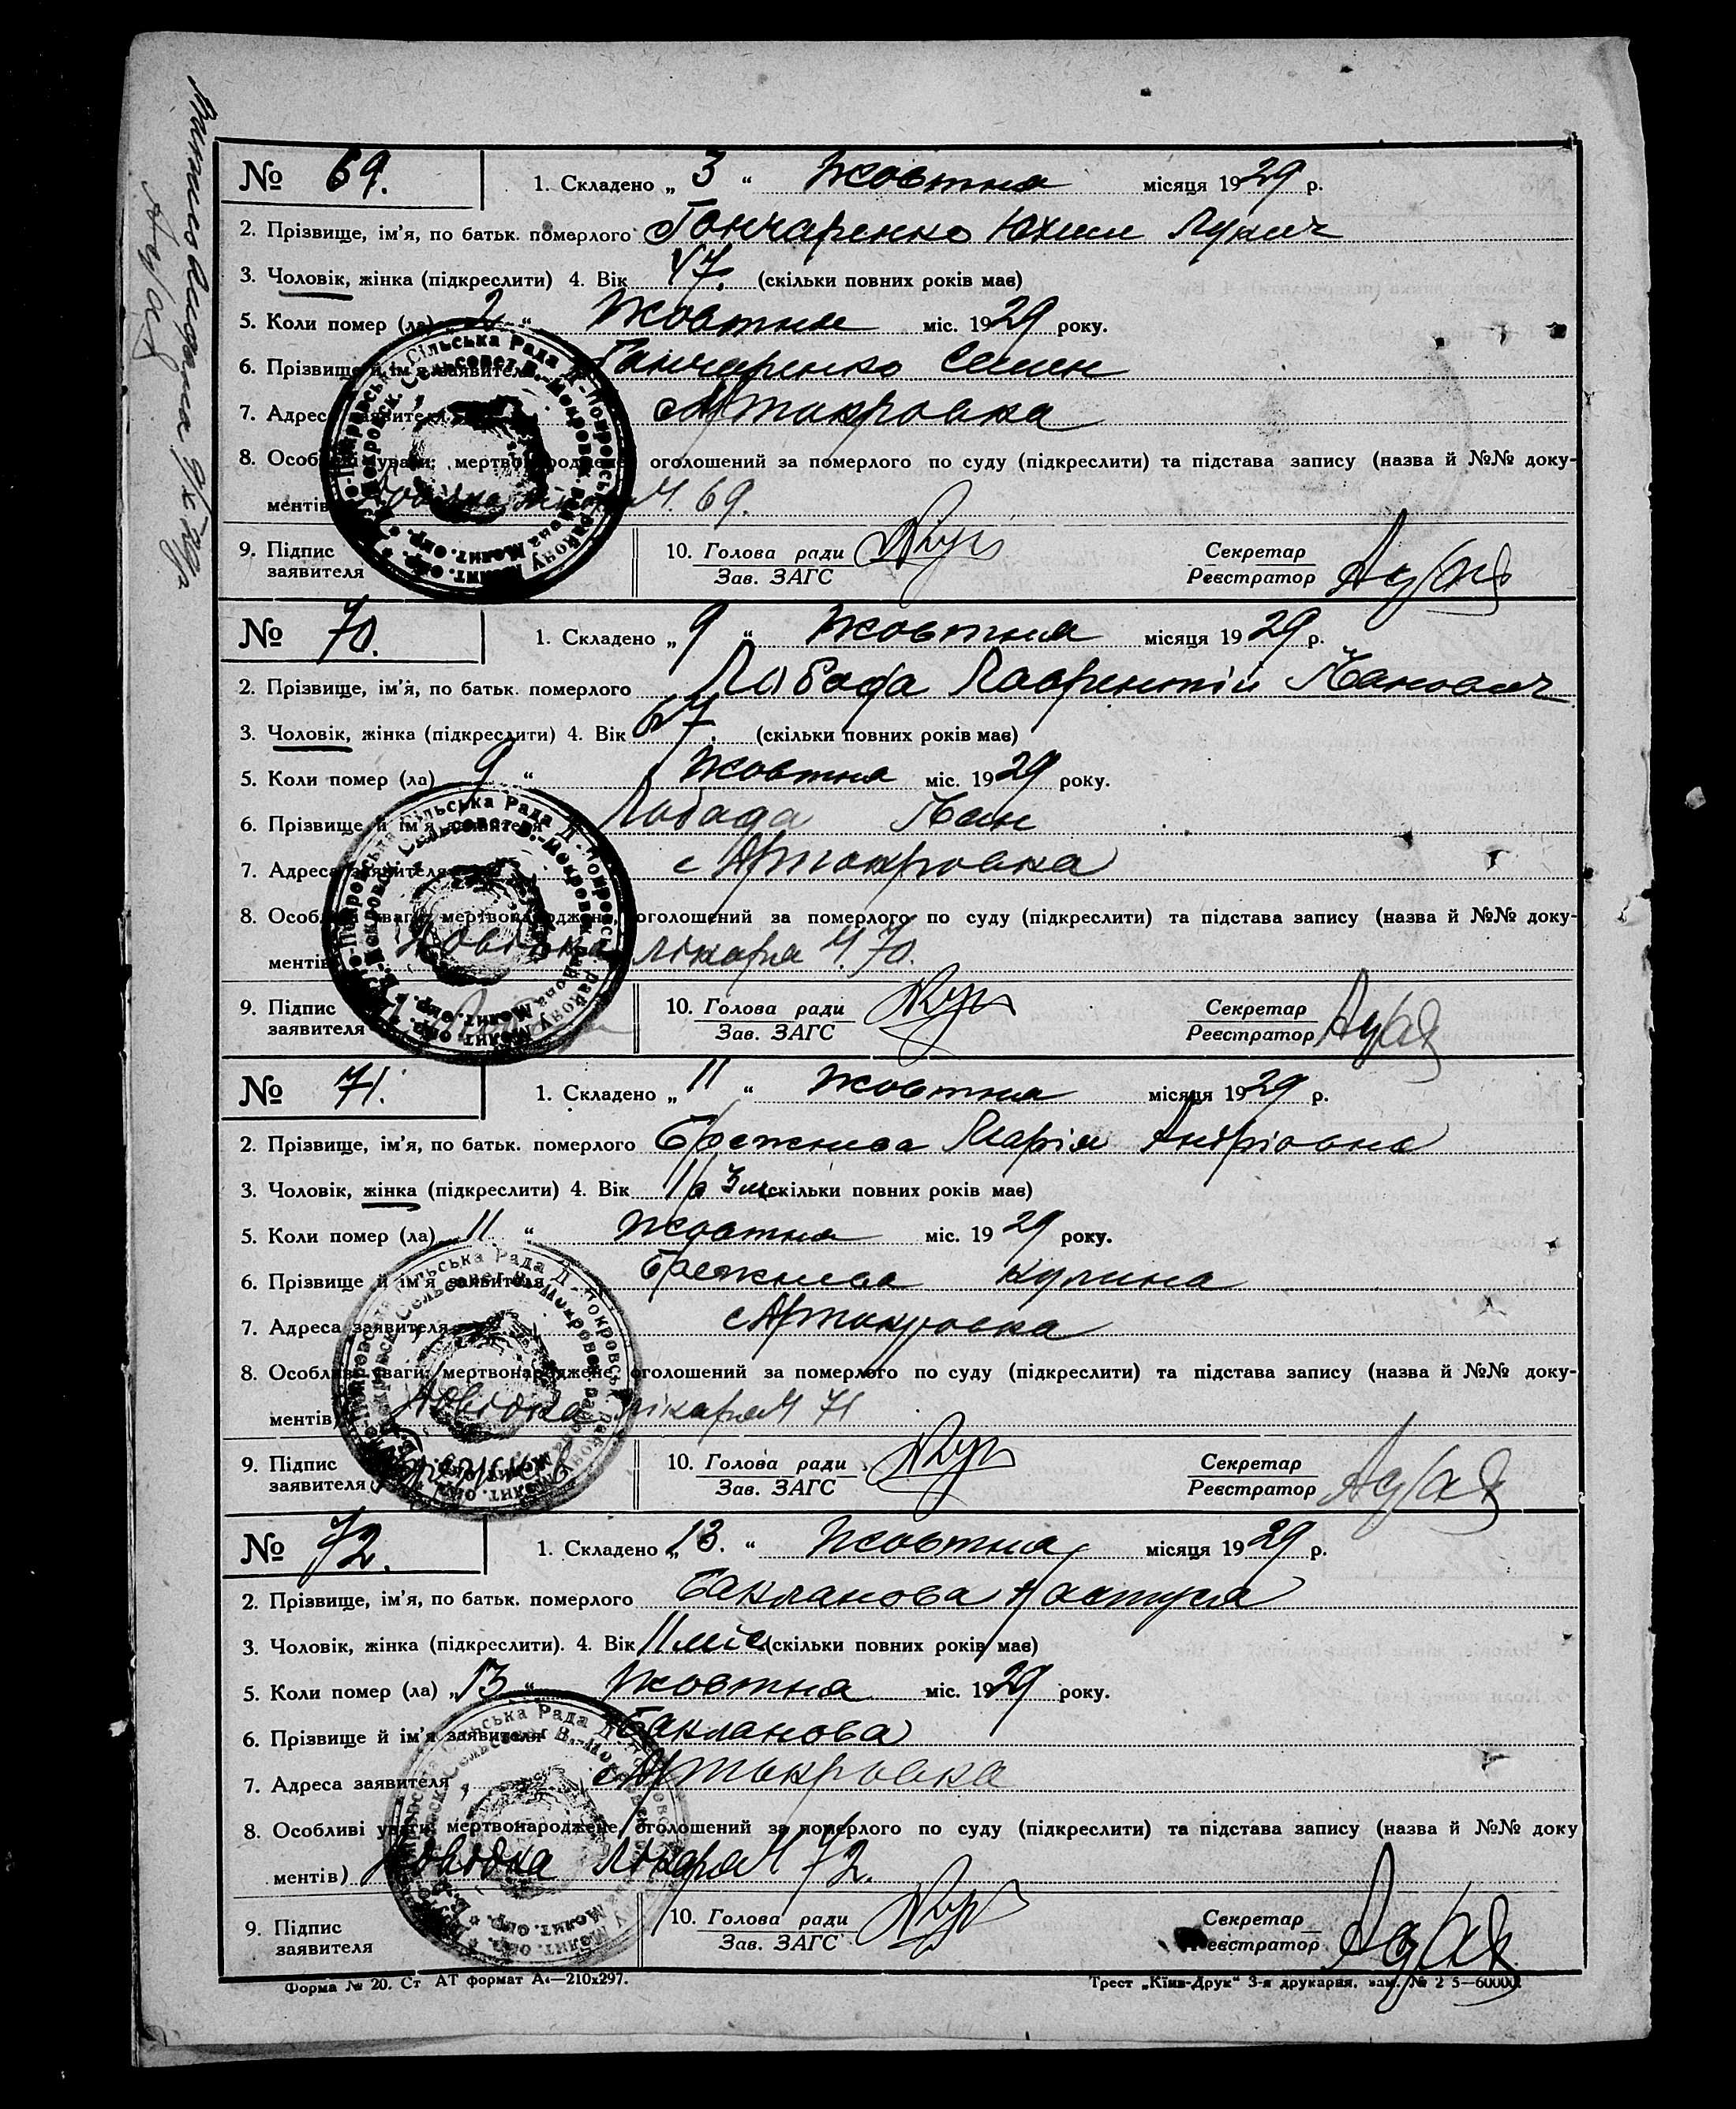 № 69. 1. Складено „ 3 “ Жовтня місяця 1929 р.
2. Прізвище, ім'я, по батьк. померлого Гончаренко Юхим Лукич
3. Чоловік, жінка (підкреслити) 4. Вік 47. (скільки повних років має)
5. Коли помер (ла) „ 2 “ Жовтня міс. 1929 року.
6. Прізвище й ім'я заявителя Гончаренко Семен
7. Адреса заявителя
8. Особливі уваги: мертвонароджене, оголошений за померлого по суду (підкреслити) та підстава запису (назва й №№ доку-
ментів) Довідка лікаря Ч. 69.
9. Підпис заявителя 10. Голова ради Зав. ЗАГС Секретар Реєстратор
№ 70. 1. Складено „ 9 “ Жовтня місяця 1929 р.
2. Прізвище, ім'я, по батьк. померлого Лобода Лаврентій Іванович
3. Чоловік, жінка (підкреслити) 4. Вік 67. (скільки повних років має)
5. Коли помер (ла) 9 “ Жовтня міс. 1929 року.
6. Прізвище й ім'я заявителя Лобода Іван
7. Адреса заявителя с
8. Особливі уваги: мертвонароджене, оголошений за померлого по суду (підкреслити) та підстава запису (назва й №№ доку-
ментів) Довідка лікаря Ч. 70.
9. Підпис заявителя 10. Голова ради Зав. ЗАГС Секретар Реєстратор
№ 71. 1. Складено „ 11 “ Жовтня місяця 1929 р.
2. Прізвище, ім'я, по батьк. померлого Брежнєва Марія Андріовна
3. Чоловік, жінка (підкреслити) 4. Вік 1 р 3 м. (скільки повних років має)
5. Коли помер (ла) 11 “ Жовтня міс. 1929 року.
6. Прізвище й ім'я заявителя Брежнєва Кулина
7. Адреса заявителя с
8. Особливі уваги: мертвонароджене, оголошений за померлого по суду (підкреслити) та підстава запису (назва й №№ доку-
ментів) Довідка лікаря Ч 71
9. Підпис заявителя 10. Голова ради Зав. ЗАГС Секретар Реєстратор
№ 72. 1. Складено „ 13. “ Жовтня місяця 1929 р.
2. Прізвище, ім'я, по батьк. померлого Бакланова
3. Чоловік, жінка (підкреслити). 4. Вік 11 міс (скільки повних років має)
5. Коли помер (ла) „ 13 “ Жовтня міс. 1929 року.
6. Прізвище й ім'я заявителя Бакланова
7. Адреса заявителя
8. Особливі уваги: мертвонароджене, оголошений за померлого по суду (підкреслити) та підстава запису (назва й №№ доку
ментів) Довідка лікаря Ч 72.
9. Підпис заявителя 10. Голова ради Зав. ЗАГС Секретар Реєстратор
Форма № 20. Ст АТ формат А4—210х297. Трест „Київ-Друк“ 3-я друкарня, зам. №